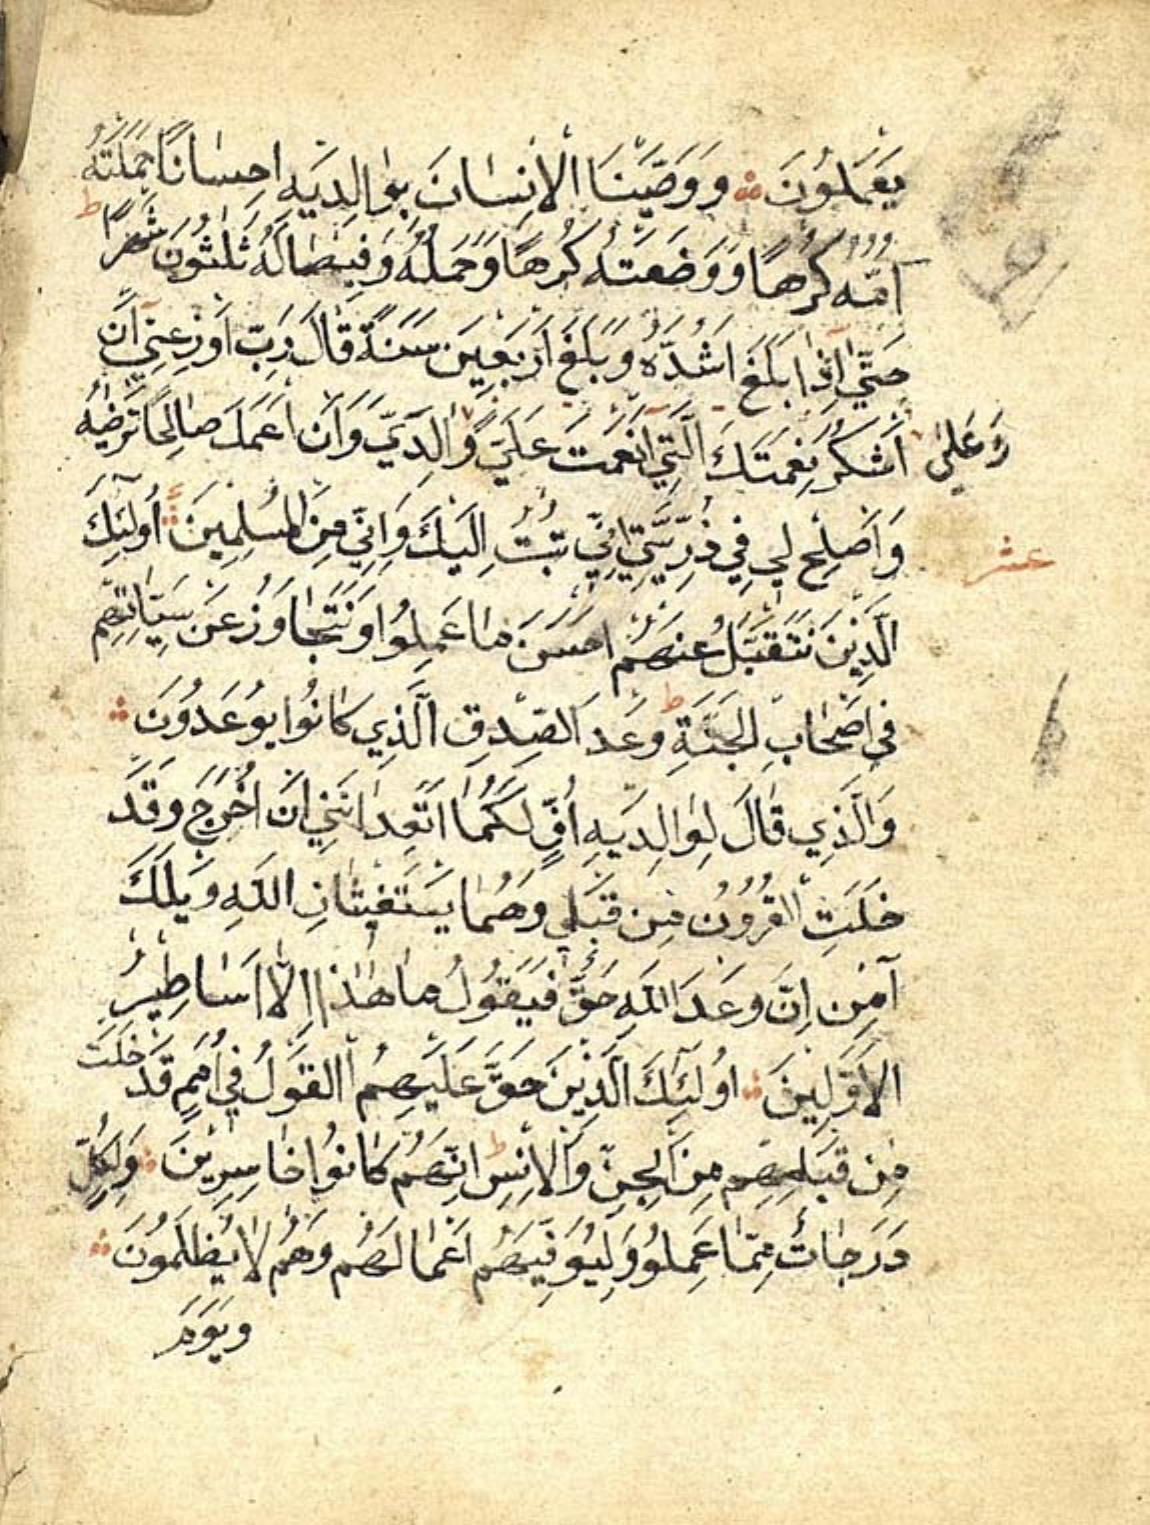 يَعْمَلُونَ وَوَصَّيْنَا الْاِنْسَانَ بِوَالِدَيْهِ اِحْسَانًا حَمَلَتْهُ
اُمُّهُ كُرْهًا وَوَضَعَتْهُ كُرْهًا وَحَمْلُهُ وَفِصَالُهُ ثَلٰثُونَ شَهْرًا ط
حَتّٰى اِذَا بَلَغَ اَشُدَّهُ وَبَلَغَ اَرْبَعِينَ سَنَةً قَالَ رَبِّ اَوْزِعْنِي اَنْ
وَعَلٰى
اَشْكُرَ نِعْمَتَكَ الَّتِي اَنْعَمْتَ عَلَيَّ وَالِدَيَّ وَاَنْ اَعْمَلَ صَالِحًا تَرْضٰيهُ
وَاَصْلِحْ لِي فِي ذُرِّيَّتِي اِنِّي تُبْتُ اِلَيْكَ وَاِنِّي مِنَ الْمُسْلِمِينَ اُولٰئِكَ
عشر
الَّذِينَ نَتَقَبَّلُ عَنْهُمْ اَحْسَنَ مَا عَمِلُوا وَنَتَجَاوَزُ عَنْ سَيِّاٰتِهِمْ
فِي اَصْحَابِ الْجَنَّةِ ط وَعْدَ الصِّدْقِ الَّذِي كَانُوا يُوعَدُونَ
وَالَّذِي قَالَ لِوَالِدَيْهِ اُفٍّ لَكُمَا اَتَعِدَانَنِي اَنْ اُخْرَجَ وَقَدْ
خَلَتِ الْقُرُونُ مِنْ قَبْلِي وَهُمَا يَسْتَغِيثَانِ اللّٰهِ وَيْلَكَ
اٰمِنْ اِنَّ وَعْدَ اللّٰهِ حَقٌّ فَيَقُولُ مَا هٰذَا اِلَّا اَسَاطِيرُ
الْاَوَّلِينَ اُولٰئِكَ الَّذِينَ حَقَّ عَلَيْهِمُ الْقَوْلُ فِي اُمَمٍ قَدْ خَلَتْ
مِنْ قَبْلِهِمْ مِنَ الْجِنِّ وَالْاِنْسِ ط اِنَّهُمْ كَانُوا خَاسِرِينَ وَلِكُلٍّ
دَرَجَاتٌ مِمَّا عَمِلُوا وَلِيُوَفِّيَهُمْ اَعْمَالَهُمْ وَهُمْ لَا يُظْلَمُونَ
وَيَوْمَ